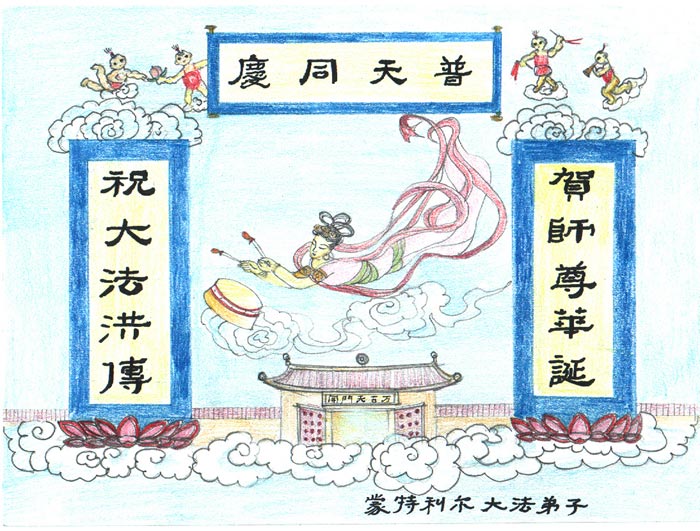 普天同慶
賀師尊華誕
祝大法洪傳
万古天門開
蒙特利尔大法弟子